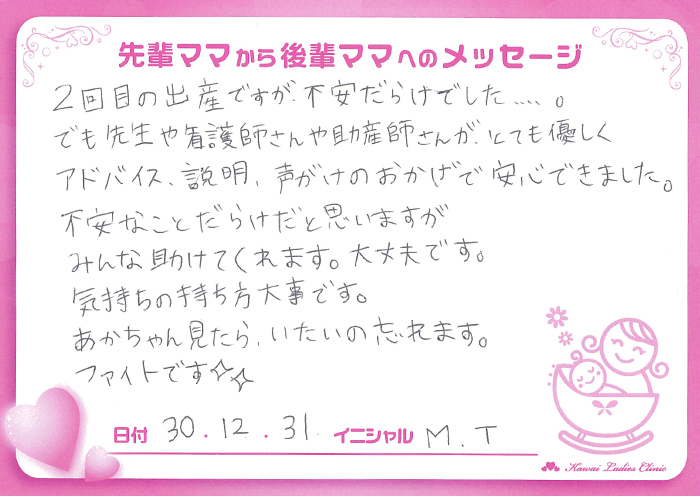 先輩ママから後輩ママへのメッセージ
2回目の出産ですが、不安だらけでした....。
でも先生や看護師さんや助産師さんが、とても優しく
アドバイス、説明、声がけのおかげで安心できました。
不安なことだらけだと思いますが
みんな助けてくれます。大丈夫です。
気持ちの持ち方大事です。
あかちゃん見たら、いたいの忘れます。
ファイトです☆☆
日付 30.12.31. イニシャル M.T
Kawai Ladies Clinic